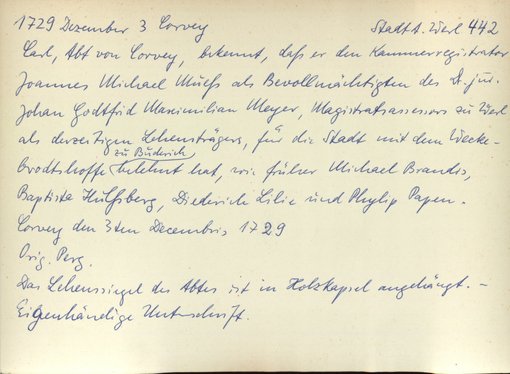 1729 Dezember 3 Corvey Stadt A. Werl 442
Carl, Abt von Corvey, bekennt, daß er den Kammerregistrator
Joannes Michael Mueß als Bevollmächtigten des Dr. jur.
Johan Godtfrid Maximilian Meyer, Magistratsassessors zu Werl
als derzeitigen Lehensträgers, für die Stadt mit dem Wecke-
zu Buderich
brodtshoffe belehnt hat, wie früher Michael Brandis,
Baptista Hülsberg, Diederich Lilie und Phylip Papen.
Corvey den 3ten Decembris 1729
Orig. Perg.
Das Lehenssiegel des Abtes ist in Holzkapsel angehängt. -
Eigenhändige Unterschrift.